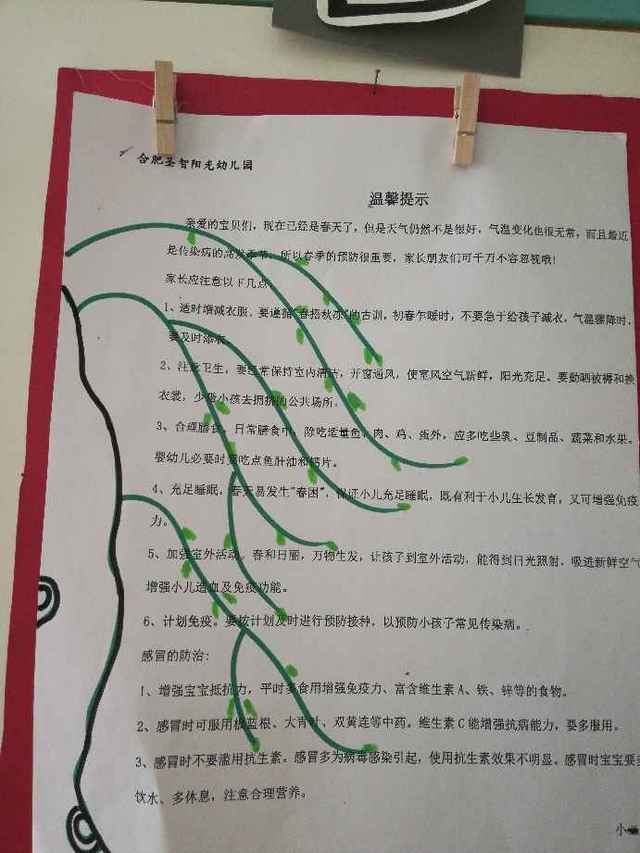 合肥圣智阳光幼儿园
温馨提示
亲爱的宝贝们，现在已经是春天了，但是天气仍然不是很好，气温变化也很无常，而且最近
是传染病的高发季节，所以春季的预防很重要，家长朋友们可千万不容忽视哦！
家长应注意以下几点
1、适时增减衣服。要遵循“春捂秋冻”的古训，初春乍暖时，不要急于给孩子减衣，气温骤降时，
要及时添衣。
2、注意卫生，要经常保持室内清洁，开窗通风，使室风空气新鲜，阳光充足。要勤晒被褥和换
衣裳，少带小孩去拥挤的公共场所。
3、合理膳食。日常膳食中，除吃适量鱼、肉、鸡、蛋外，应多吃些乳、豆制品、蔬菜和水果。
婴幼儿必要时要吃点鱼肝油和钙片。
4、充足睡眠，春天易发生“春困”，保证小儿充足睡眠，既有利于小儿生长发育，又可增强免疫
力。
5、加强室外活动。春和日丽，万物生发，让孩子到室外活动，能得到日光照射，吸进新鲜空气
增强小儿造血及免疫功能。
6、计划免疫。要按计划及时进行预防接种，以预防小孩子常见传染病。
感冒的防治：
1、增强宝宝抵抗力，平时多食用增强免疫力、富含维生素 A、铁、锌等的食物。
2、感冒时可服用板蓝根、大青叶、双黄连等中药。维生素 C 能增强抗病能力，要多服用。
3、感冒时不要滥用抗生素。感冒多为病毒感染引起，使用抗生素效果不明显。感冒时宝宝要
饮水、多休息，注意合理营养。
小